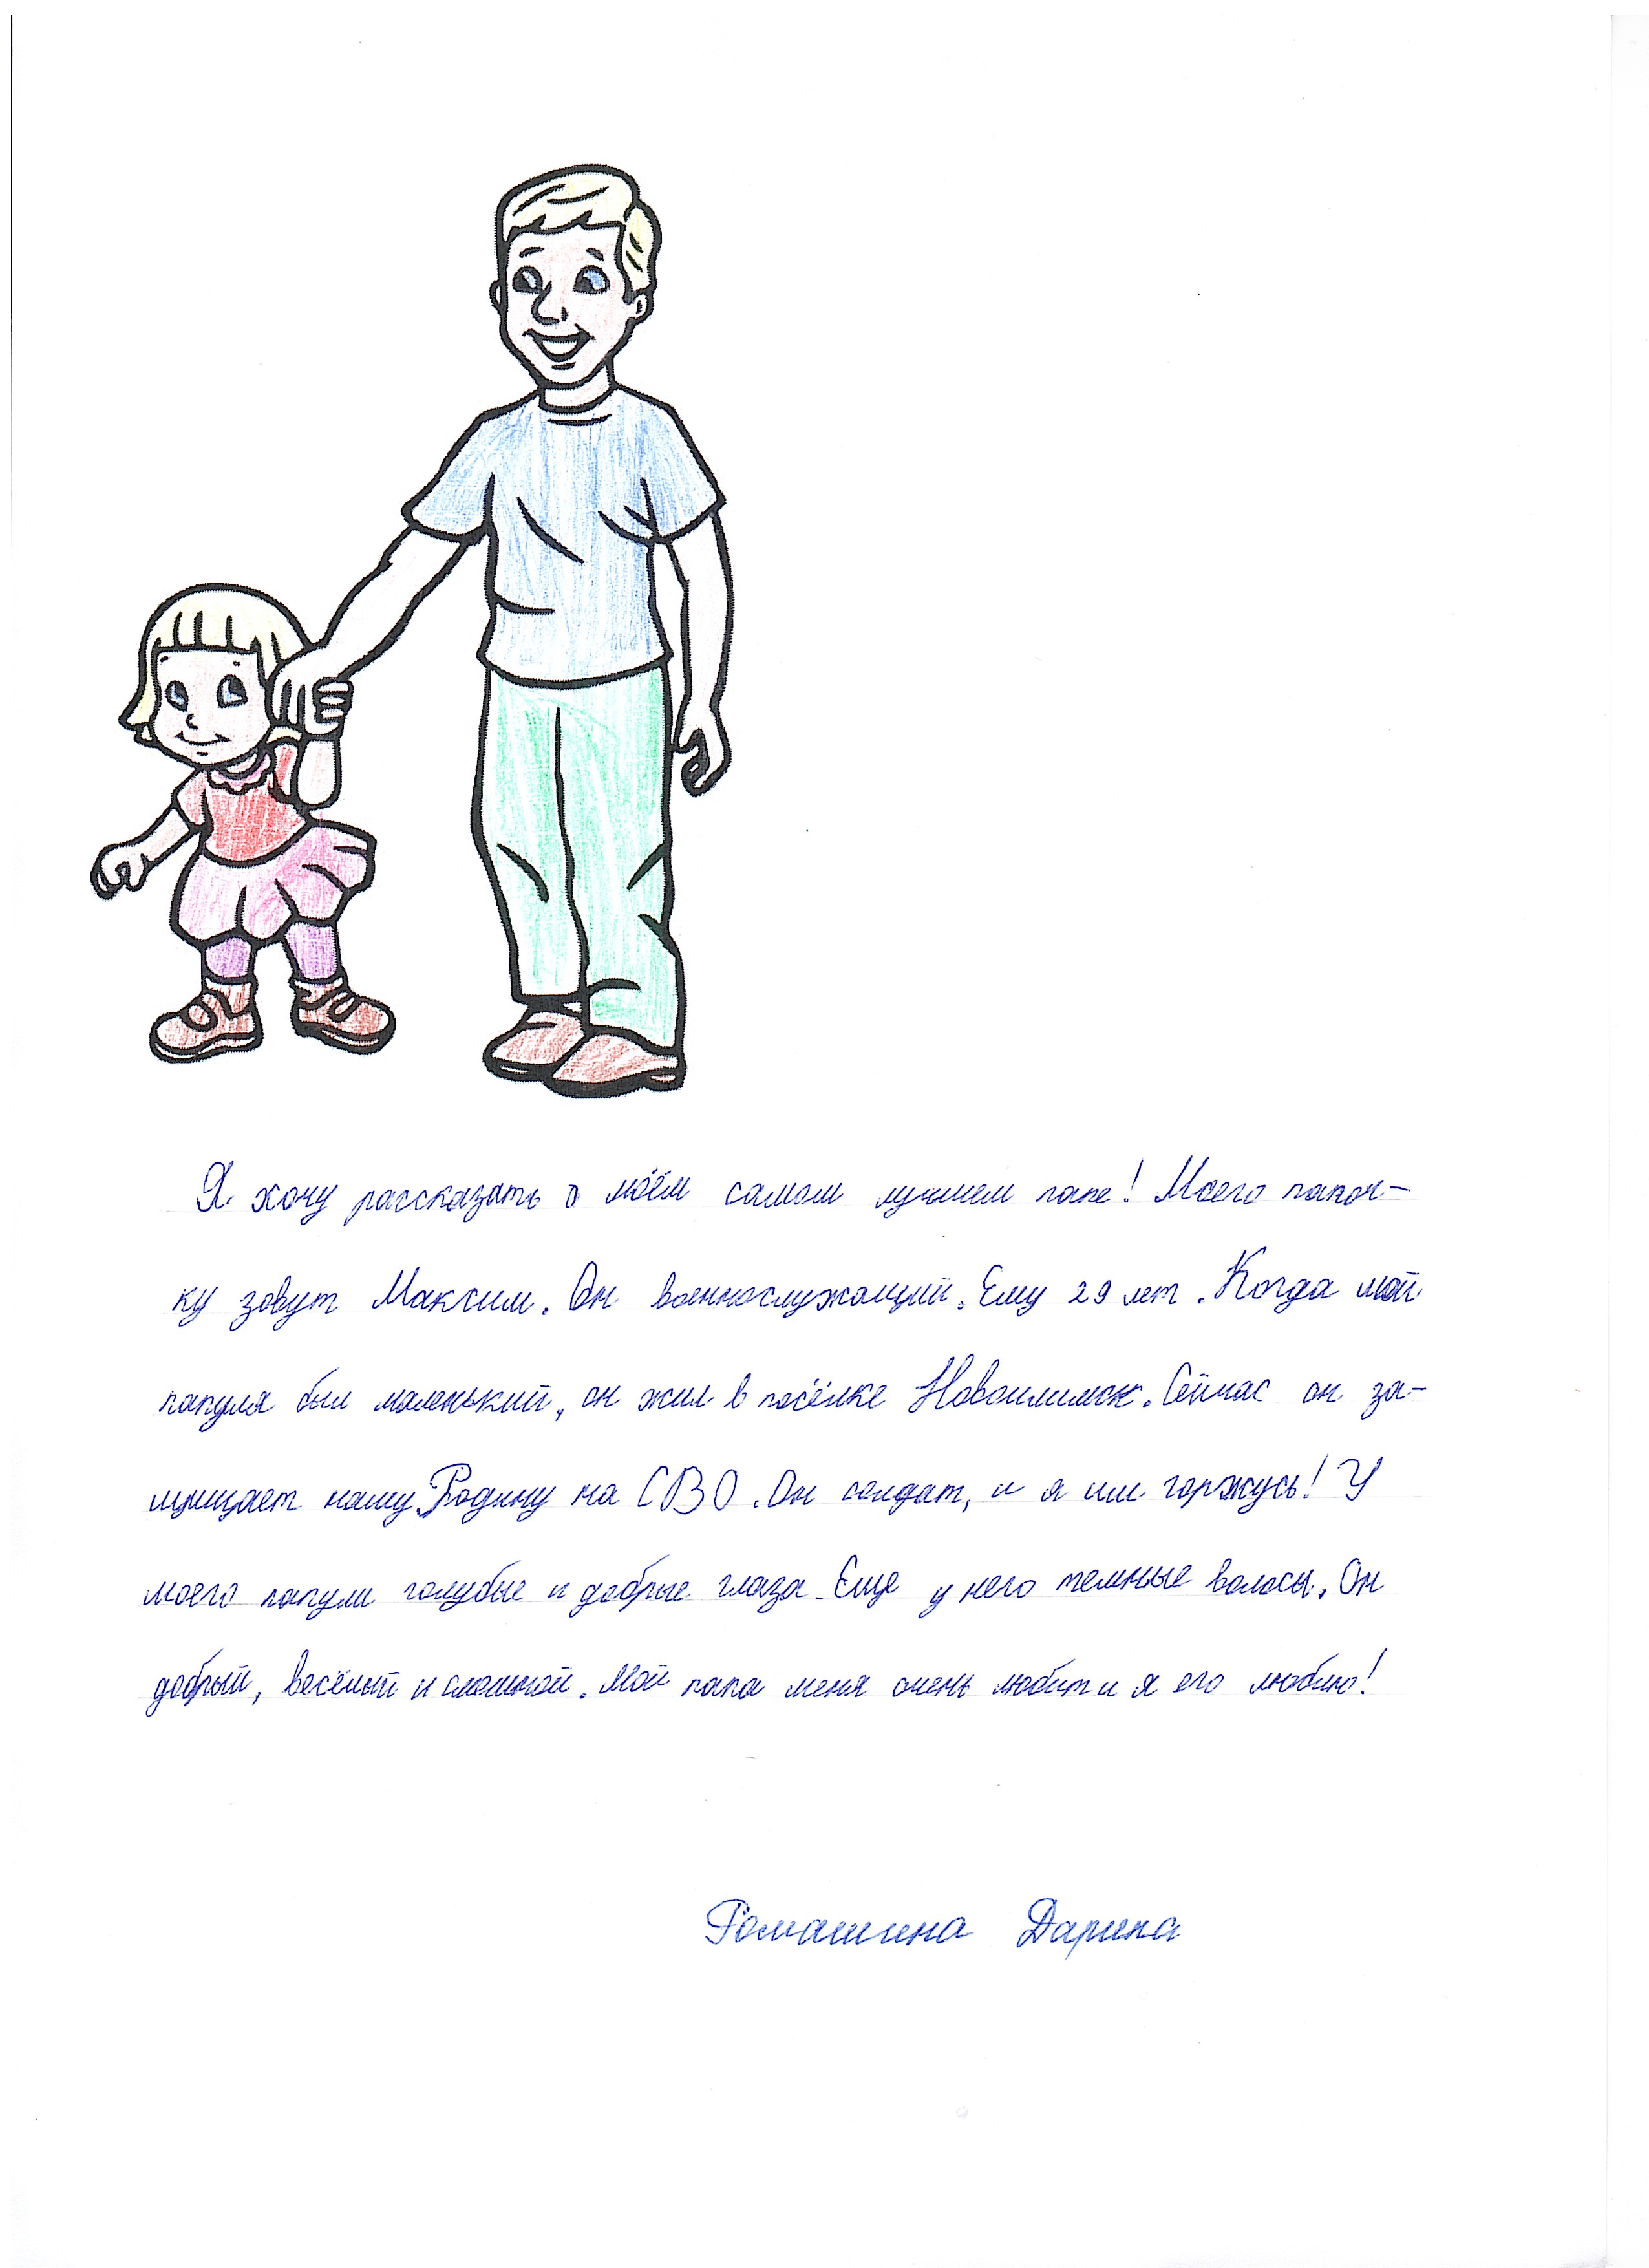 Я хочу рассказать о моём самом лучшем папе! Моего папоч-
ку зовут Максим. Он военнослужащий. Ему 29 лет. Когда мой
папуля был маленький, он жил в посёлке Новоилимск. Сейчас он за-
щищает нашу Родину на СВО. Он солдат, и я им горжусь! У
моего папули голубые и добрые глаза. Еще у него темные волосы. Он
добрый, весёлый и смешной. Мой папа меня очень любит и я его люблю!
Ромашина Дарина